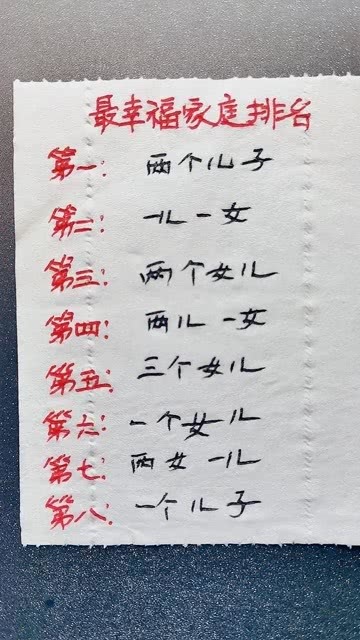 最幸福家庭排名
第一：两个儿子
第二：一儿一女
第三：两个女儿
第四：两儿一女
第五：三个女儿
第六：一个女儿
第七：两女一儿
第八：一个儿子